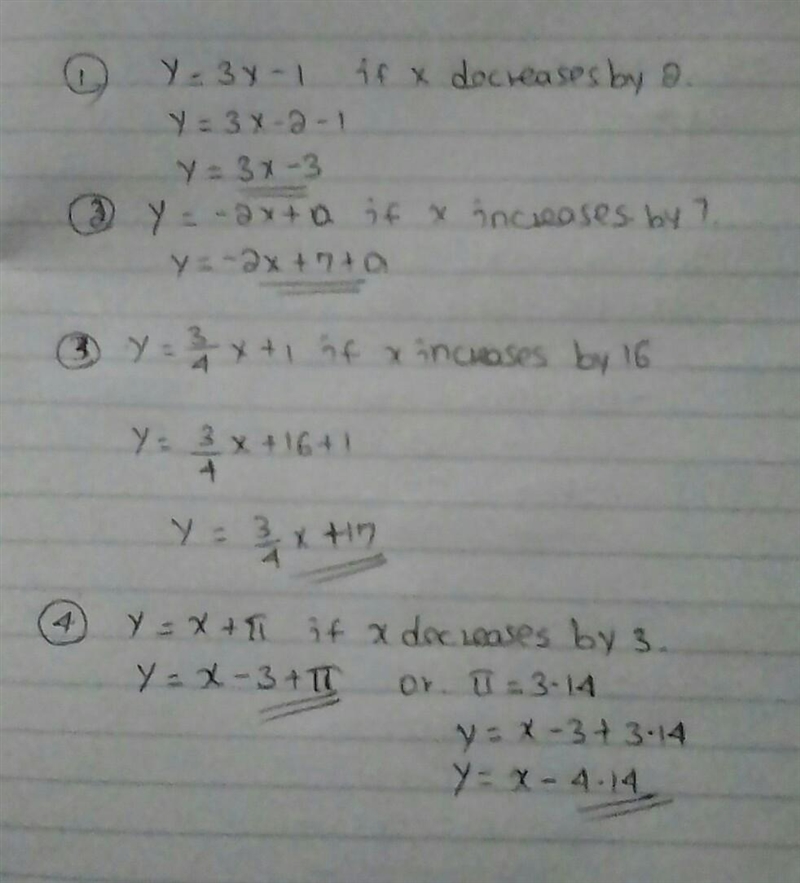 ① y = 3x - 1 if x decreases by 2.
y = 3x - 2 - 1
y = 3x - 3
② y = -2x + a if x increases by 7.
y = -2x + 7 + a
③ y = 3/4 x + 1 if x increases by 16
y = 3/4 x + 16 + 1
y = 3/4 x + 17
④ y = x + π if x decreases by 3.
y = x - 3 + π or π = 3.14
y = x - 3 + 3.14
y = x - 4.14